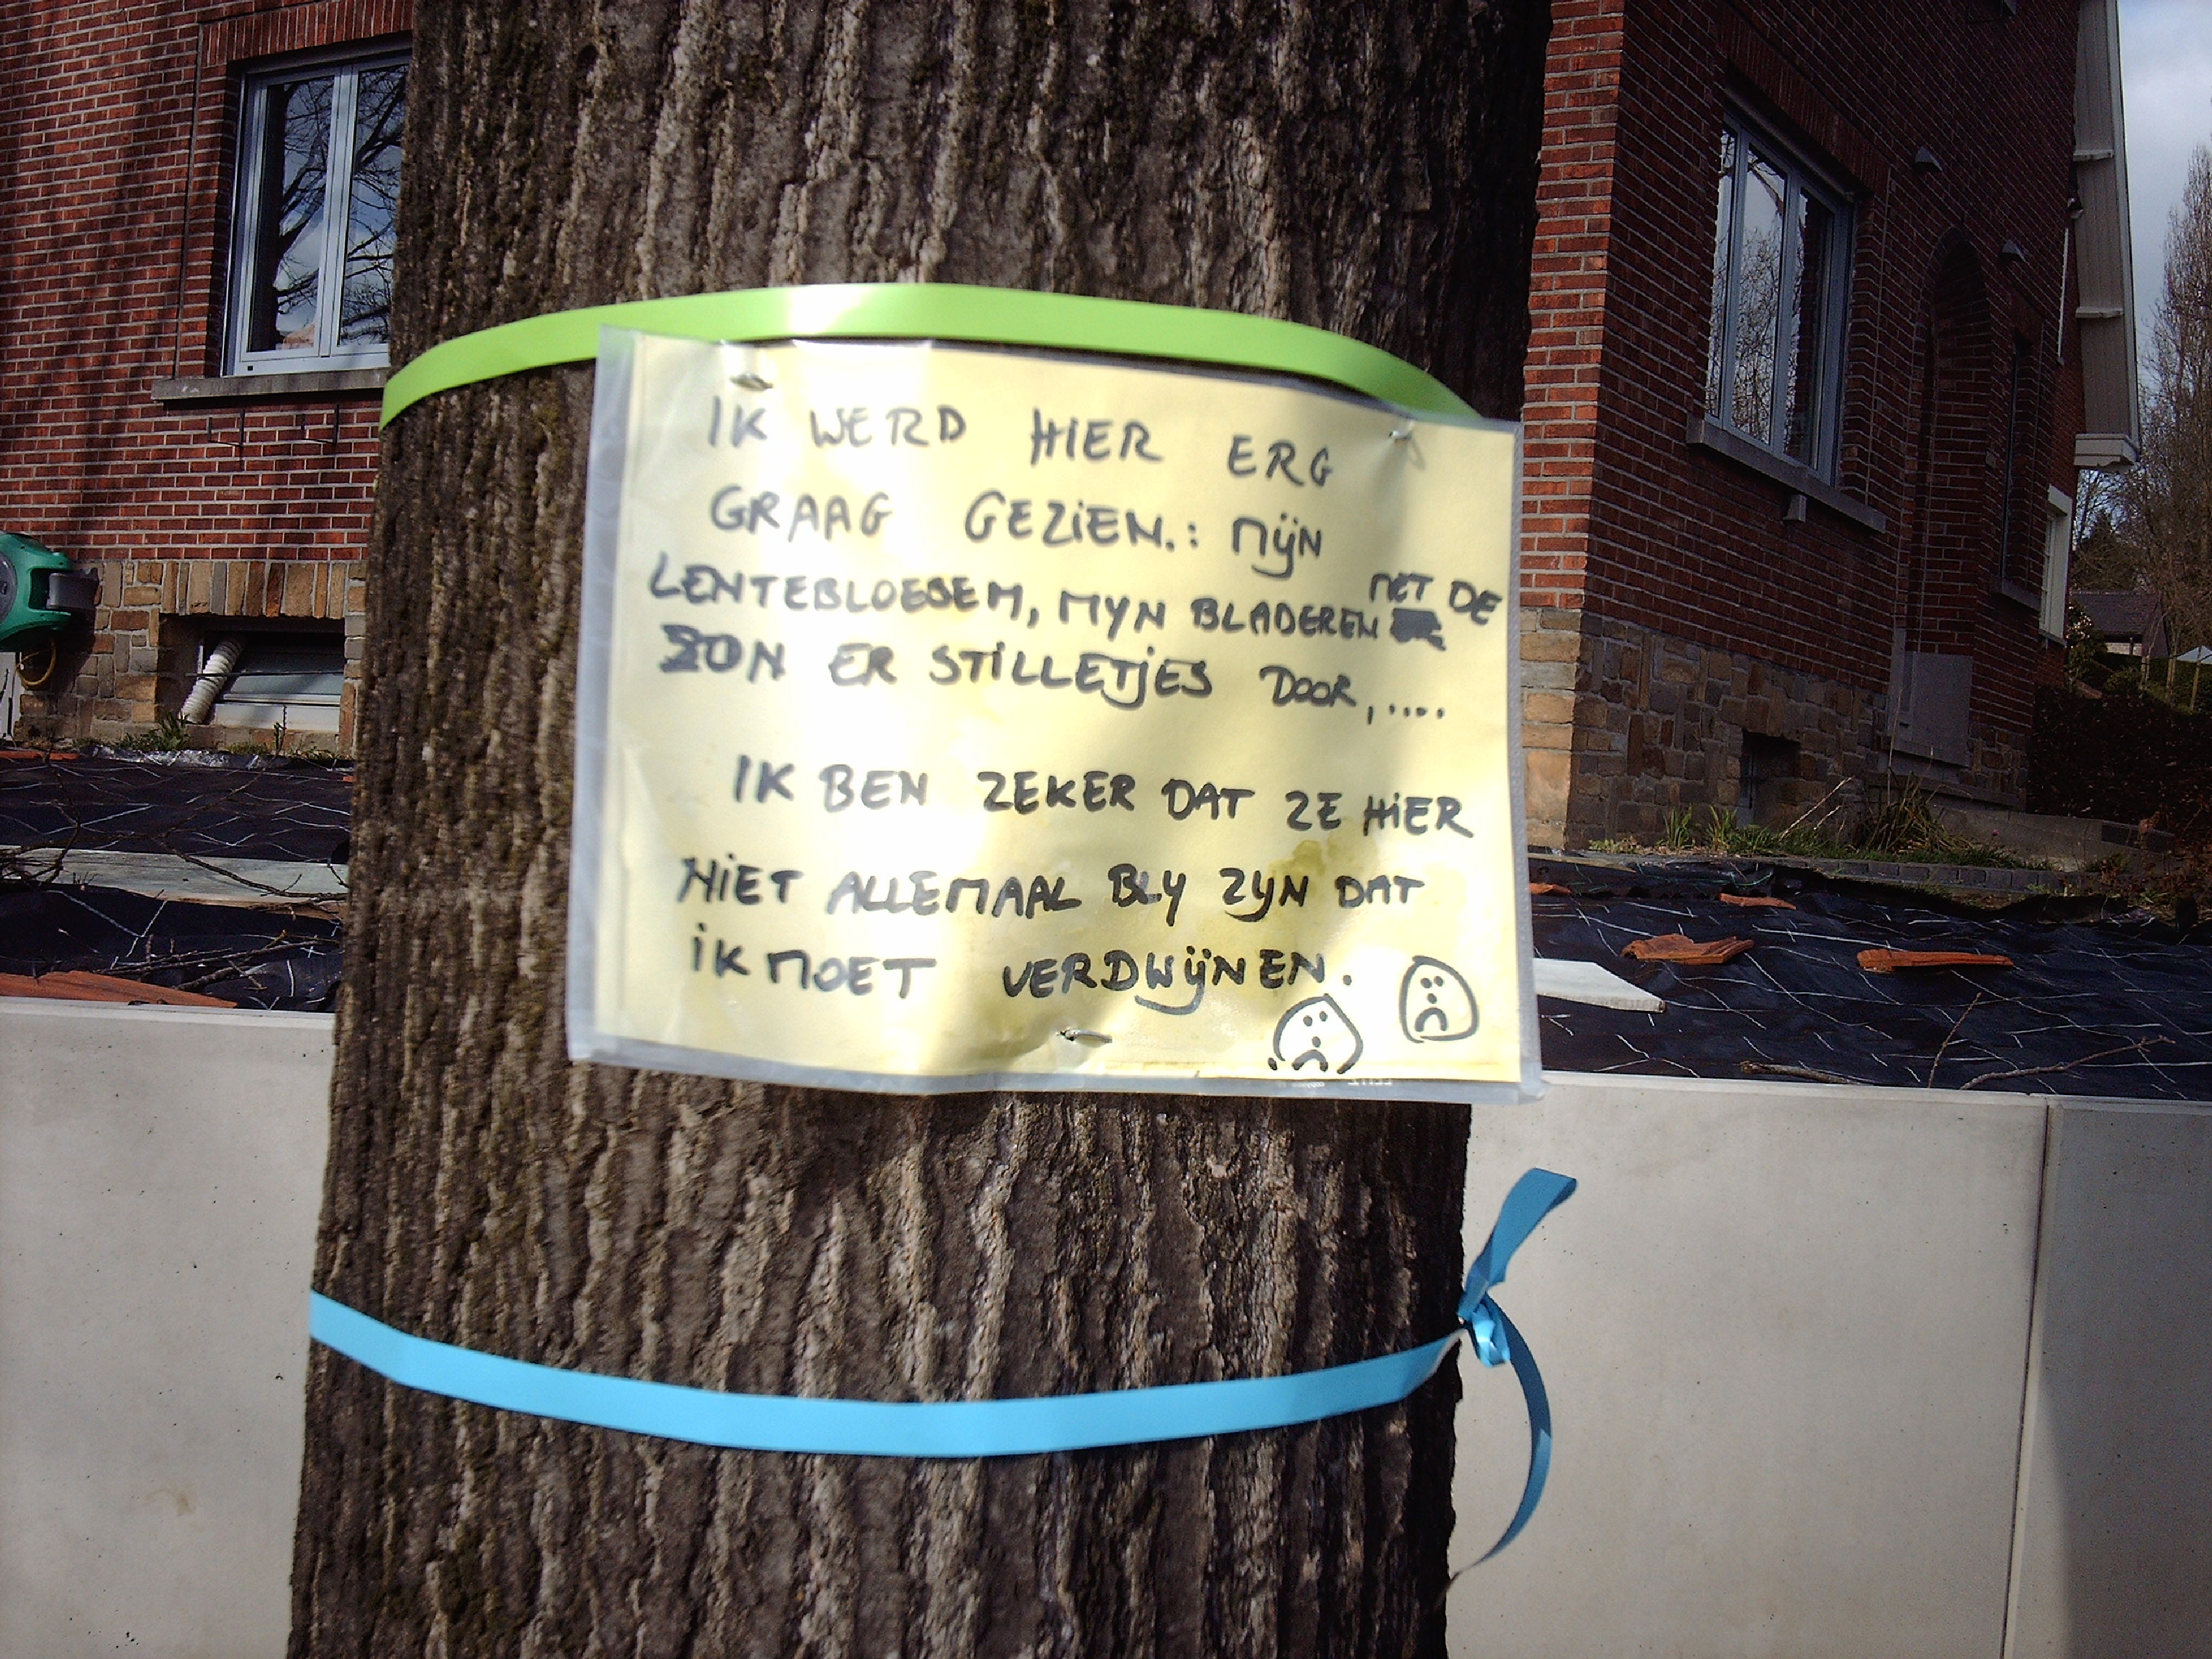 IK WERD HIER ERG
GRAAG GEZIEN.: MIJN
LENTEBLOESEM, MYN BLADEREN MET DE
ZON ER STILLETJES DOOR, ....
IK BEN ZEKER DAT ZE HIER
NIET ALLEMAAL BLY ZYN DAT
IK MOET VERDWIJNEN.